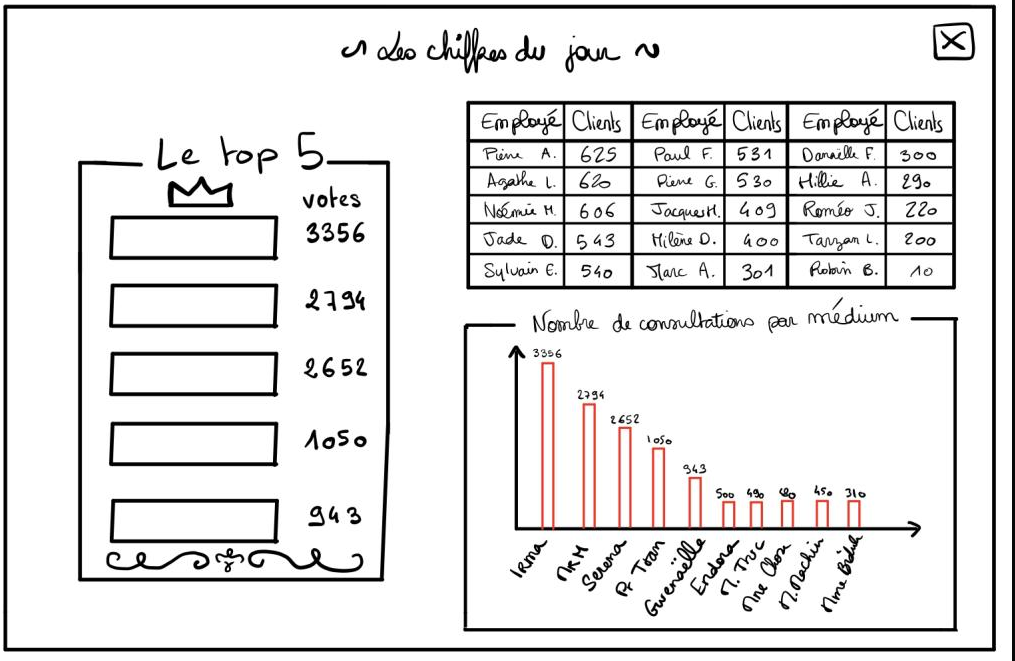 ~ Les chiffres du jour ~
X
Le top 5
votes
3356
2794
2652
1050
943
Employé Clients Employé Clients Employé Clients
Pierre A. 625 Paul F. 531 Danielle F. 300
Agathe L. 620 Pierre G. 530 Hillie A. 290
Noémie M. 606 Jacques H. 409 Roméo J. 220
Jade D. 543 Milène D. 400 Tarzan L. 200
Sylvain E. 540 Marc A. 301 Robin B. 10
Nombre de consultations par médium
3356
2794
2652
1050
943
500
490
450
310
Irma
MRM
Serena
Pr Toran
Gwenaëlle
Endora
M. Truc
Mme Chose
M. Machin
Mme Bidule